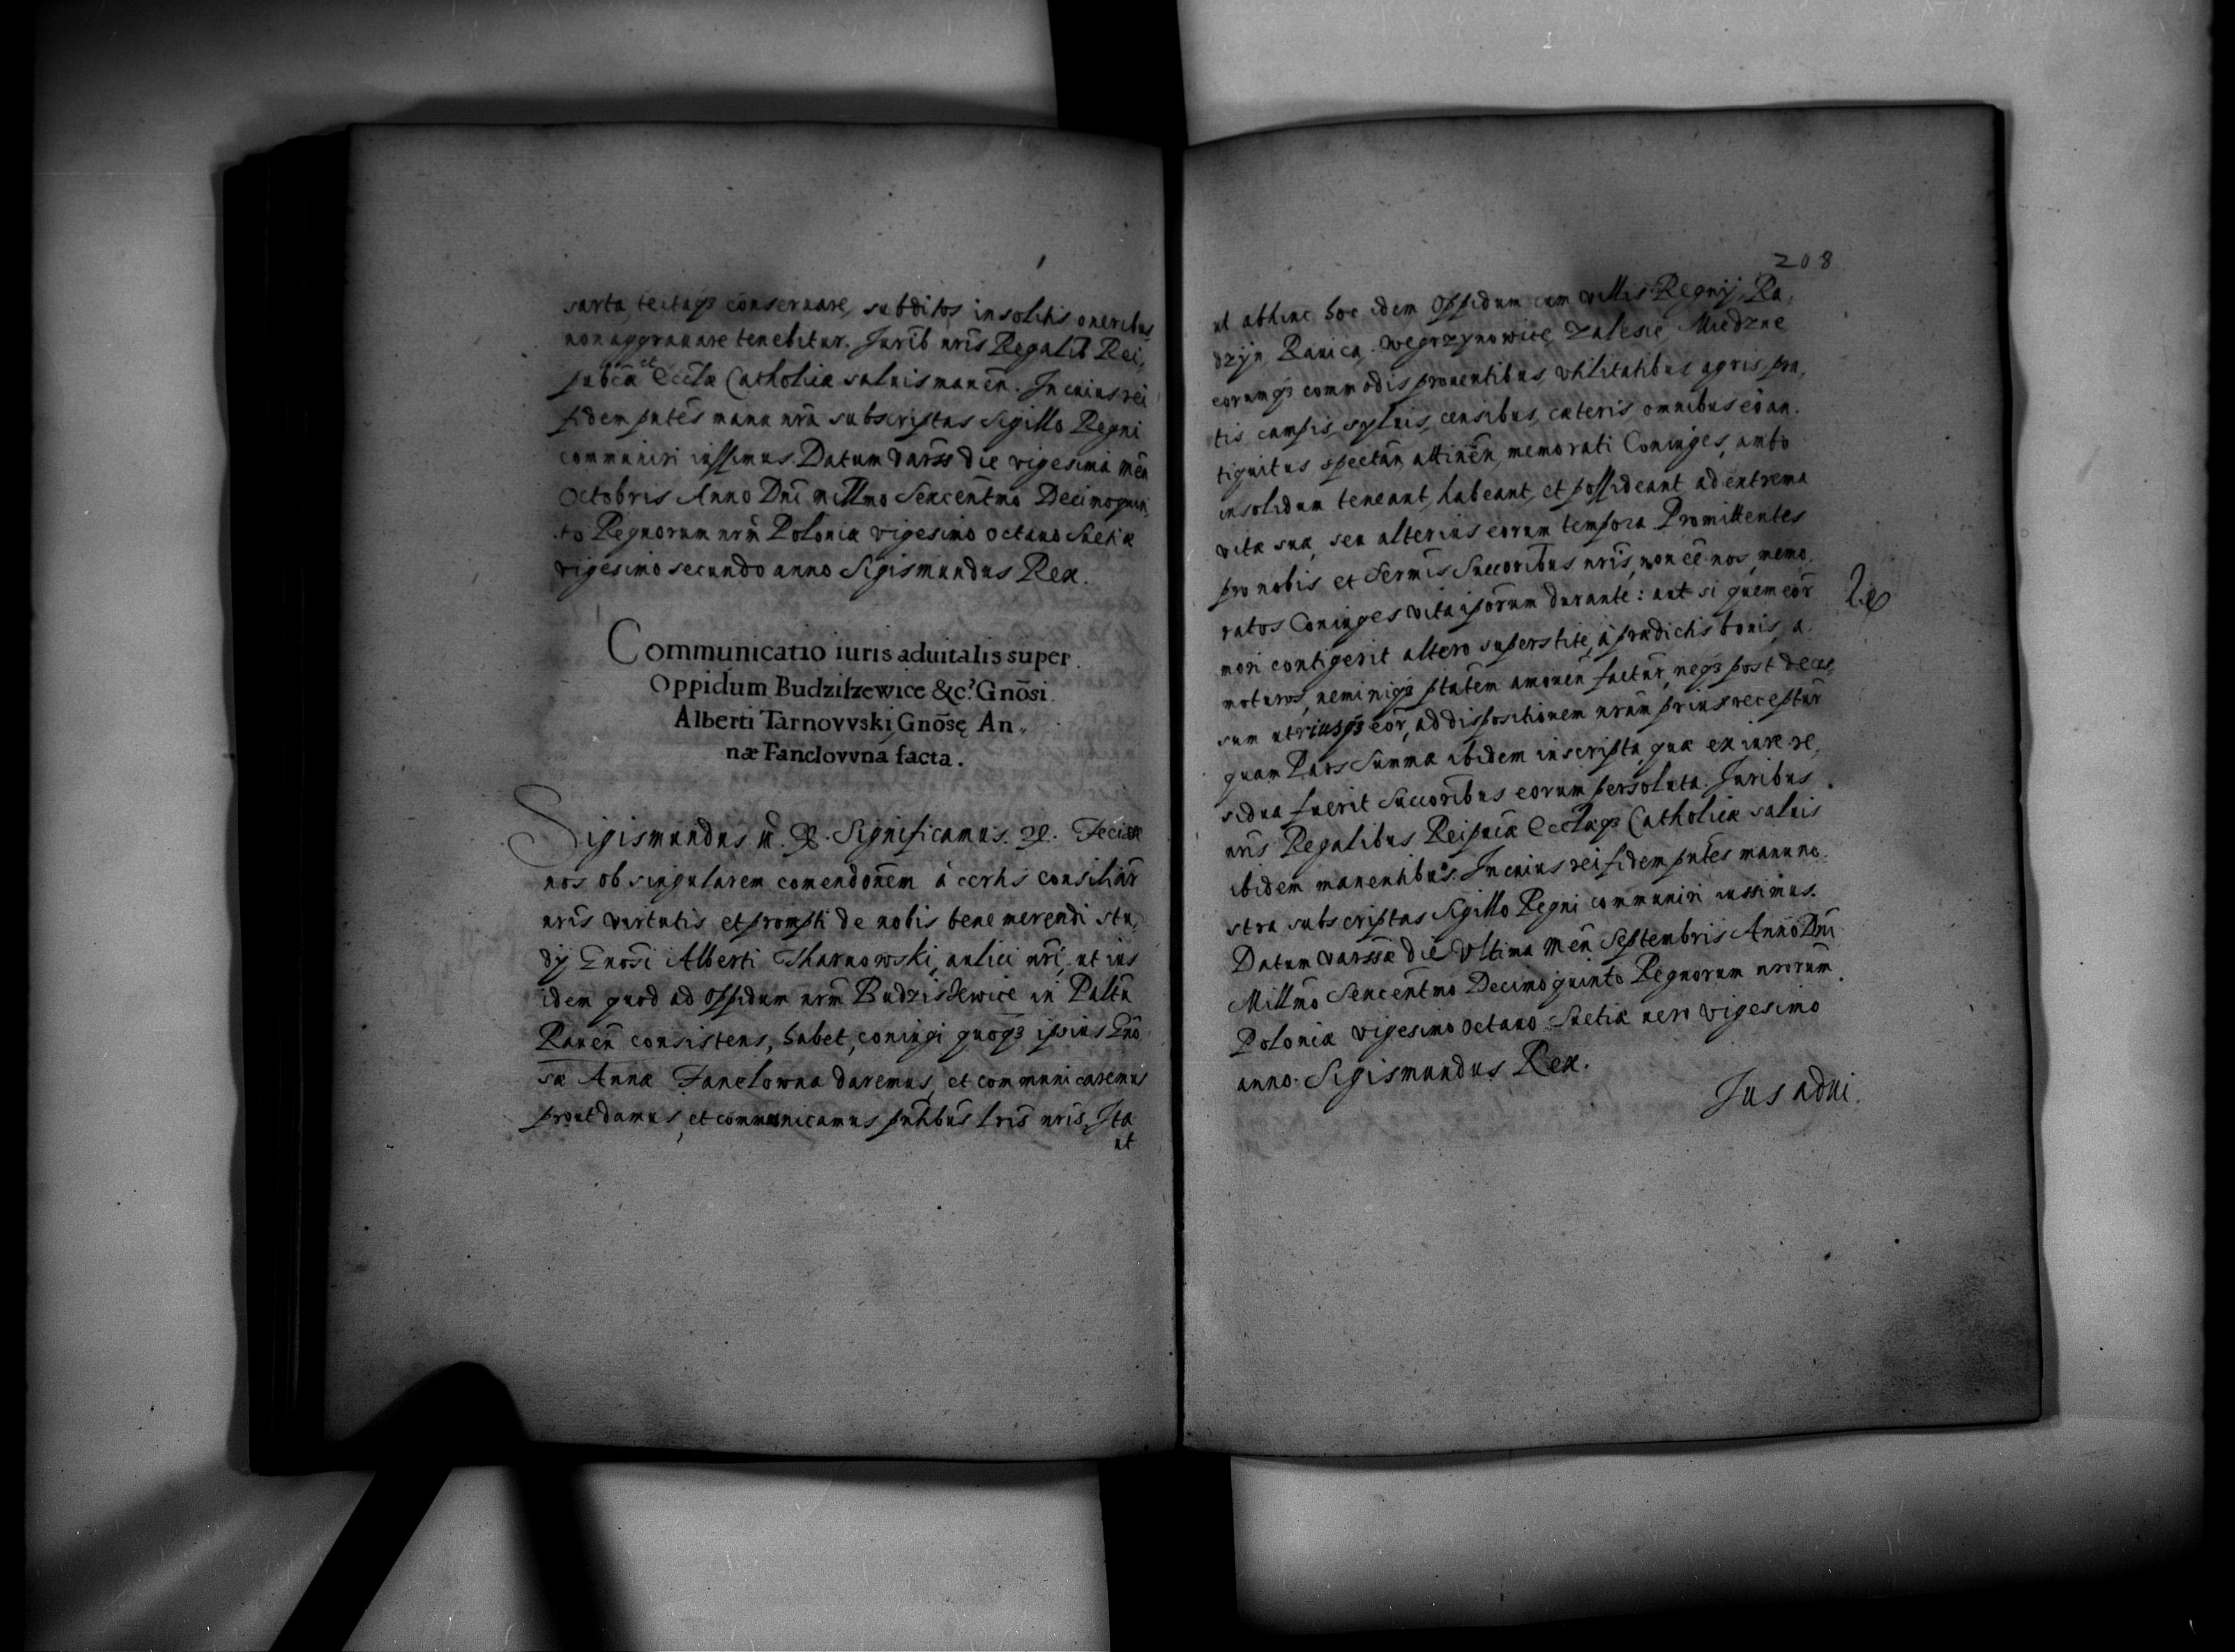 sarta tectaqз conseruare, subditos insolitis oneribus
non aggrauare tenebitur. Jurib nris Regalib Rei,
pubca et Eccla Catholica saluis manen. In cuius rei
fidem pntes manu nra subscriptas Sigillo Regni
communiri iussimus. Datum Varss die vigesima Men
Octobris Anno Dni Millmo Sexcentmo Decimoquin,
to Regnorum nrm Poloniæ vigesimo octauo Suetiæ
vigesimo secundo anno Sigismundus Rex.
Communicatio iuris aduitalis super
Oppidum Budziszewice &c? Gnōsi
Alberti Tarnovvski Gnōsę An,
næ Fanclovvna facta.
Sigismundus Significamus. Fecisse
nos ob singularem comendonem à certis consiliar
nris virtutis et prompti de nobis bene merendi stu,
dij Gnosi Alberti Tharnowski, aulici nri, ut ius
idem quod ad Oppidum nrm Budzisзewice in Paltu
Rauen consistens, habet, coniugi quoqз ipsius Gno
sæ Annæ Fanclowna daremus, et communicaremus
prout damus, et communicamus pntibus lris nris, Ita
ut
208
ut abhinc hoc idem Oppidum cum villis Regnij, Ra,
dzijn, Rauica, Wegrzynowice, Zalesie, Miedzne
eorumqз commodis prouentibus, vtilitatibus agris, pra,
tis campis, syluis, censibus, cæteris omnibus eò an.
tiquitus spectan, attinen, memorati Coniuges, ambo
insolidum teneant, habeant, et possideant ad extrema
vitæ suæ, seu alterius eorum tempora. Promittentes
pro nobis et Sermis Succoribus nris, non ee nos, memo,
ratos Coniuges vita ipsorum durante: aut si quem eor
mori contigerit altero superstite, à prædictis bonis, a
moturos, neminiqз ptatem amouen factur, neqз post deces,
sum utriusqз eor, ad dispositionem nram prius receptur
quam Pars Summæ ibidem inscripta, quæ ex iure re,
sidua fuerit Succoribus eorum persoluta. Juribus
nris Regalibus Reipucæ Ecclæqз Catholicæ saluis
ibidem manentibus. In cuius rei fidem pntes manu no,
stra subscriptas Sigillo Regni communiri iussimus.
Datum Varssæ die Vltima Men Septembris Anno Dni
Millmo Sexcentmo Decimoquinto Regnorum nrorum
Poloniæ vigesimo octauo Suetiæ uero vigesimo
anno. Sigismundus Rex.
Jus adui.